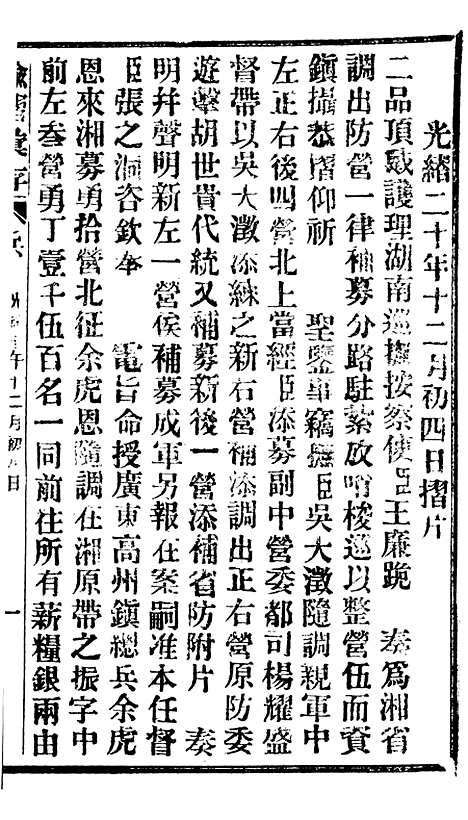 光緒二十年十二月初四日摺片
二品頂戴護理湖南巡撫按察使臣王廉跪　奏爲湘省
調出防營一律補募分路駐紮放哨梭巡以整營伍而資
鎭攝恭摺仰祈　聖鑒事竊撫臣吳大澂隨調親軍中
左正右後四營北上當經臣添募副中營委都司楊耀盛
督帶以吳大澂添練之新右營補添調出正右營原防委
遊擊胡世貴代統又補募新後一營添補省防附片　奏
明幷聲明新左一營俟補募成軍另報在案嗣准本任督
臣張之洞咨欽奉　電旨命授廣東高州鎭總兵余虎
恩來湘募勇拾營北征余虎恩隨調在湘原帶之振字中
前左叁營勇丁壹千伍百名一同前往所有薪糧銀兩由
兵
年十二月初
日
一